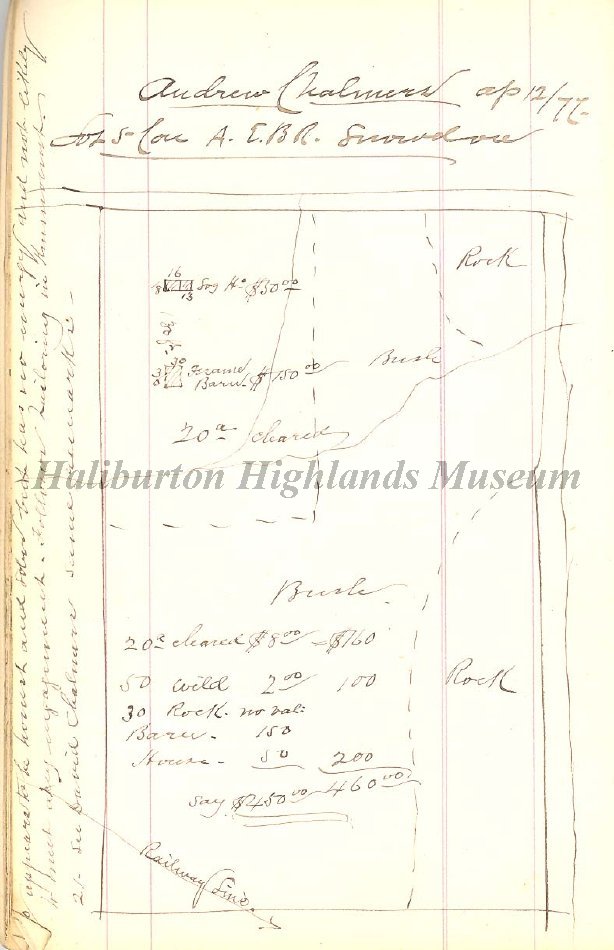 Andrew Chalmers ap 12/77
Lot 5 Con A. E.B.R. Snowdon
Rock
16
18
13
Log Ho $50.00
30
30
Frame
Barn $150.00
Bush
20a cleared
Haliburton Highlands Museum
Bush
20a cleared $8.00 = $160
50 Wild 2.00 100
30 Rock no val:
Barn - 150
House - 50 200
460.00
Say $450.00
Rock
Railway Line
appears to be honest and sober but has no energy and not likely
to meet any engagement. Follows Tailoring in Kinmount.
See David Chalmers same remarks -